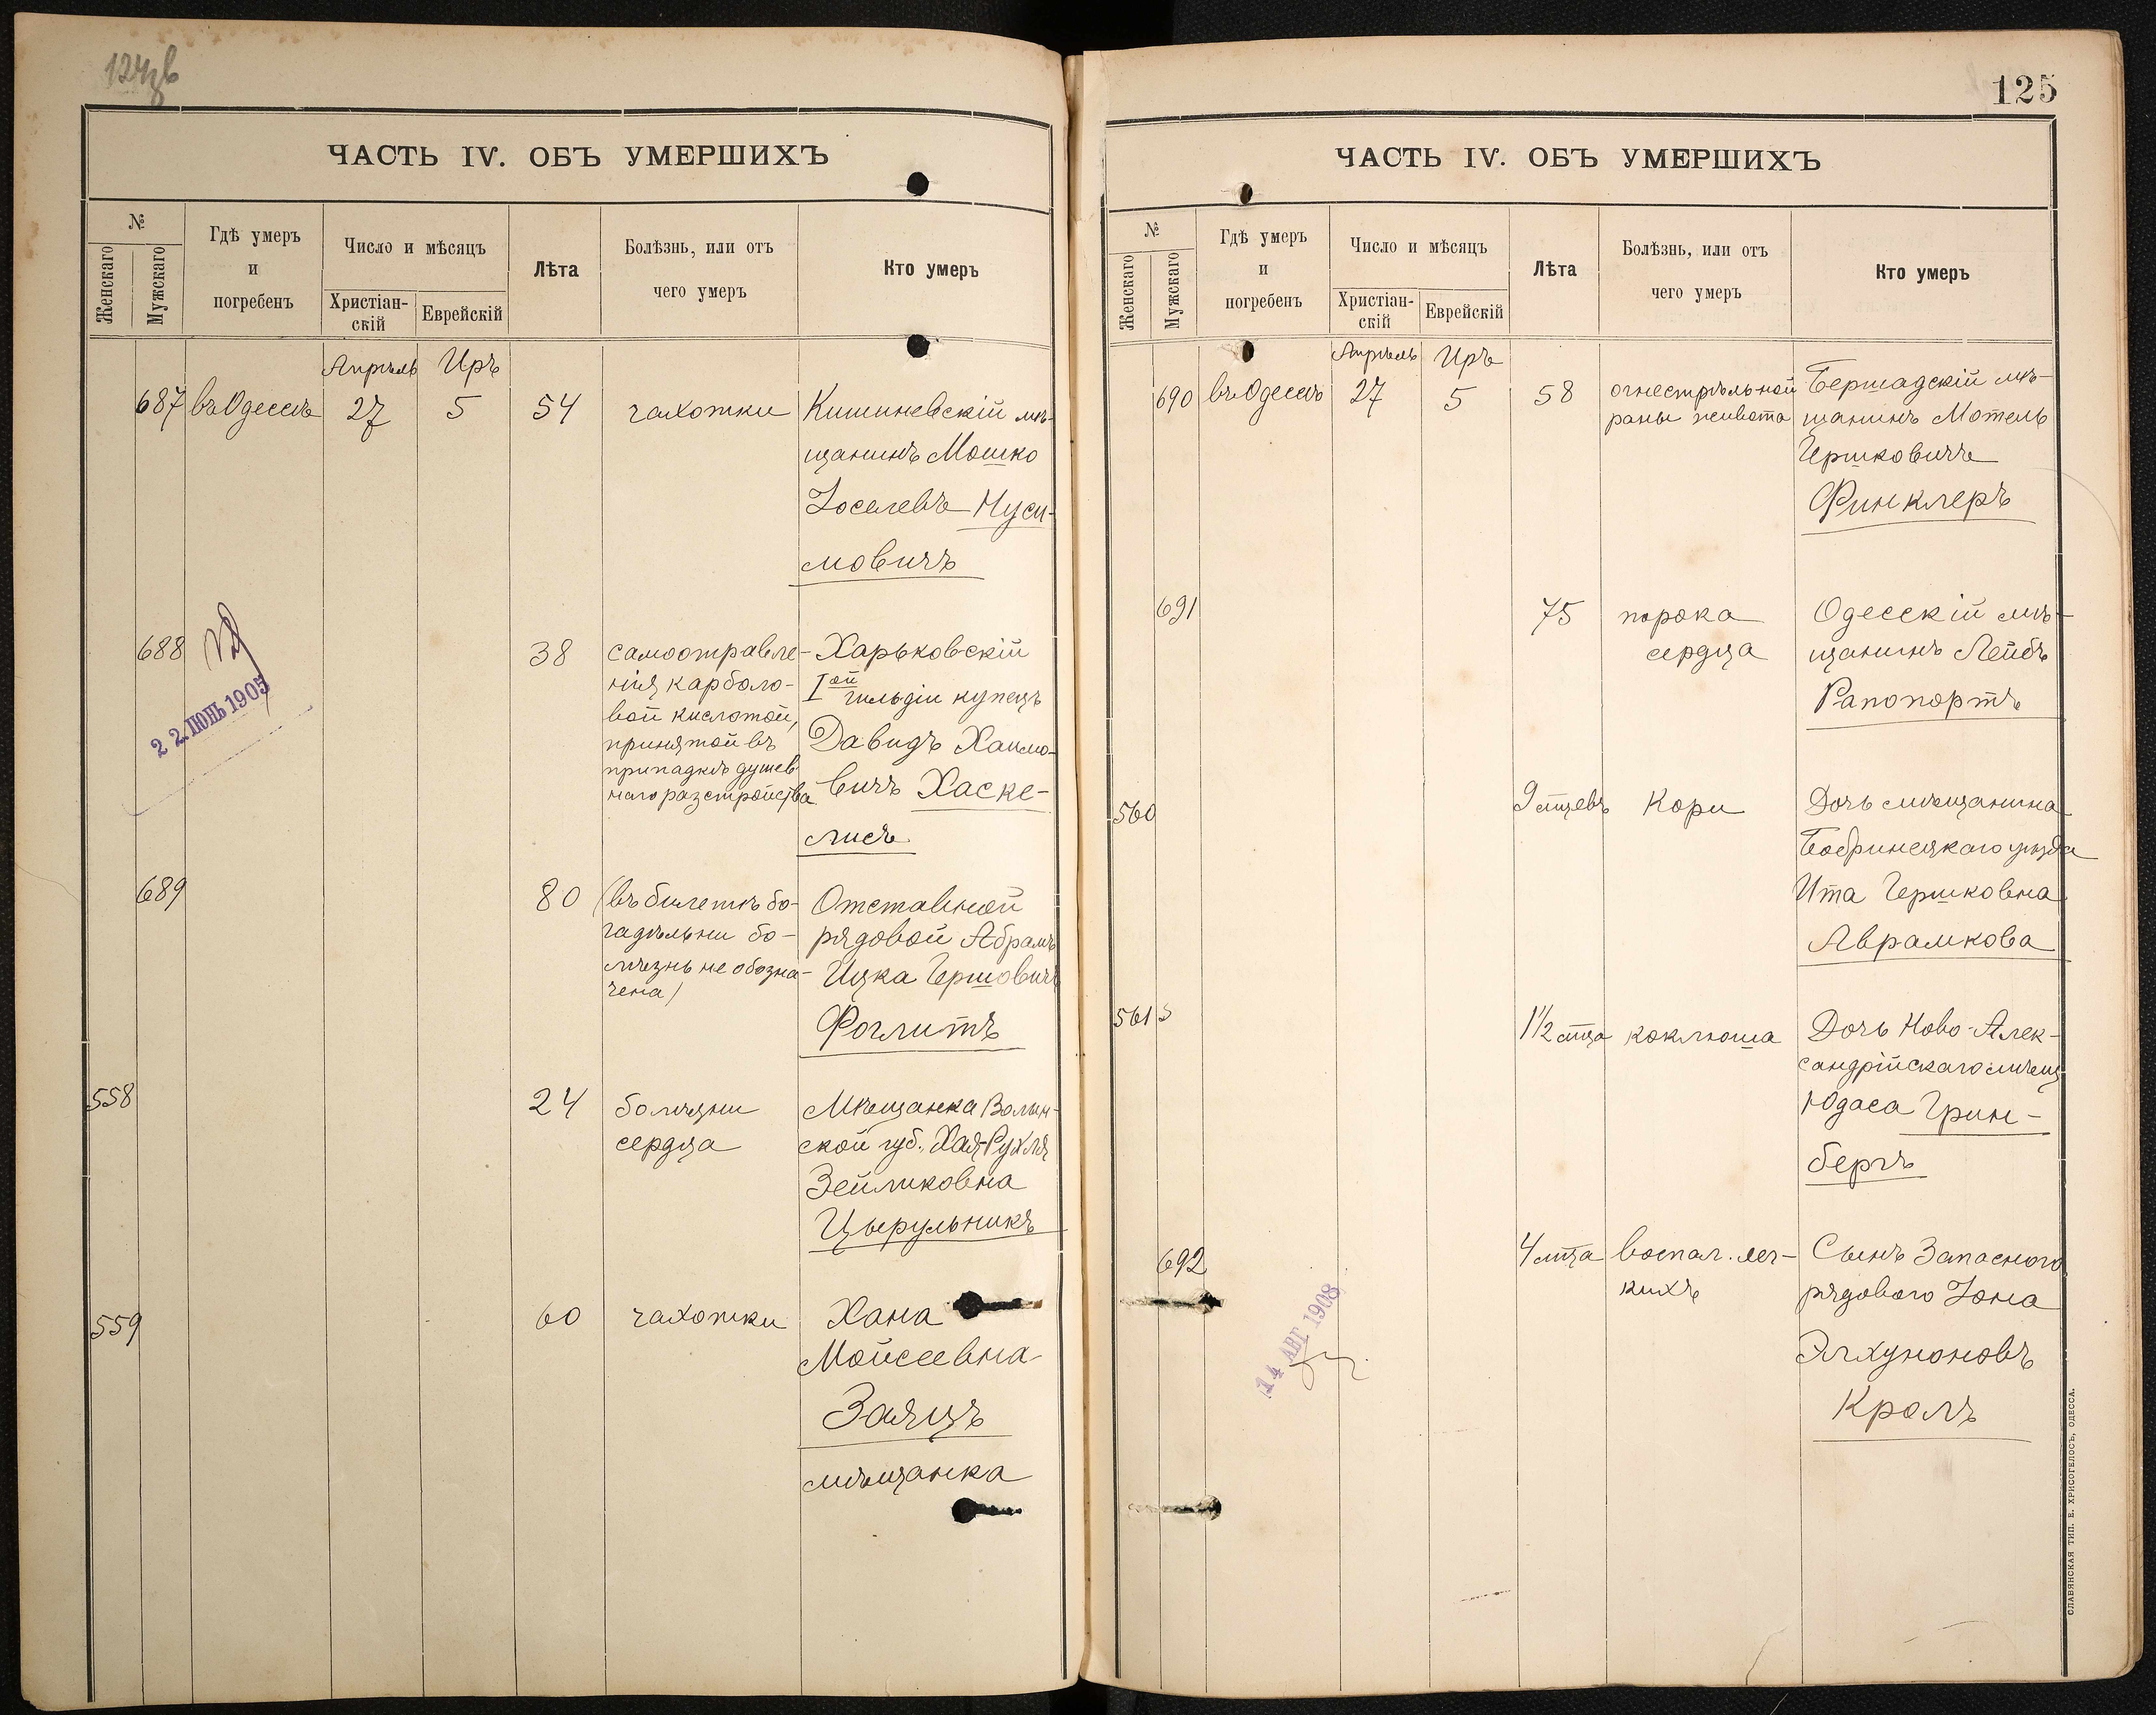 ЧАСТЬ IV. ОБЪ УМЕРШИХЪ
№
Женскаго
Мужскаго
Гдѣ умеръ
и
погребенъ
Число и мѣсяцъ
Христіан-
скій
Еврейскій
Лѣта
Болѣзнь, или отъ
чего умеръ
Кто умеръ
Апрѣль Иръ
687 въ Одессѣ 27 5 54 чахотки Кишиневскій мѣ-
щанинъ Мошко
Іоселевъ Нуси-
мовичъ
688 38 самоотравле-
нія карболо-
вой кислотой,
принятой въ
припадкѣ душев-
наго разстройства
Харьковскій
Iой гильдіи купецъ
Давидъ Хаимо-
вичъ Хаске-
лисъ
22 ІЮНЬ 1905
689 80 (въ билетѣ бо-
гадѣльни бо-
лѣзнь не обозна-
чена)
Отставной
рядовой Абрамъ
Ицка Гершовичъ
Фоглитъ
558 24 болѣзни
сердца
Мѣщанка Волын-
ской губ. Хая-Рухля
Зейликовна
Цырульникъ
559 60 чахотки Хана
Мойсеевна
Заяцъ
мѣщанка
125
ЧАСТЬ IV. ОБЪ УМЕРШИХЪ
№
Женскаго
Мужскаго
Гдѣ умеръ
и
погребенъ
Число и мѣсяцъ
Христіан-
скій
Еврейскій
Лѣта
Болѣзнь, или отъ
чего умеръ
Кто умеръ
Апрѣль Иръ
690 въ Одессѣ 27 5 58 огнестрѣльной
раны живота
Бершадскій мѣ-
щанинъ Мотель
Гершковичъ
Финклеръ
691 75 порока
сердца
Одесскій мѣ-
щанинъ Лейбъ
Рапопортъ
560 9 мцевъ Кори Дочь мѣщанина
Бобринецкаго уѣзда
Ита Гершковна
Аврамкова
561 1½ мца коклюша Дочь Ново-Алек-
сандрійскаго мѣщ.
Юдаса Грин-
бергъ
692 4 мца воспал. лег-
кихъ
Сынъ Запасного
рядового Іона
Элхуноновъ
Кролъ
14 АВГ 1908
СЛАВЯНСКАЯ ТИП. Е. ХРИСОГЕЛОСЪ, ОДЕССА.